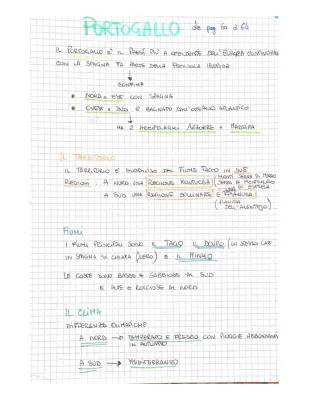 PORTOGALLO da pag 60 a 64
IL PORTOGALLO E' IL PAESE PIU' A OCCIDENTE DELL'EUROPA CONTINENTALE
CON LA SPAGNA FA PARTE DELLA PENISOLA IBERICA
CONFINA
NORD e EST CON SPAGNA
OVEST e SUD È BAGNATO DALL'OCEANO ATLANTICO
HA 2 ARCIPELAGHI AZZORRE e MADEIRA
IL TERRITORIO
IL TERRITORIO È DAL FIUME TAGO IN DUE
REGIONI: A NORD UNA REGIONE MONTUOSA
A SUD UNA REGIONE COLLINARE E PIANURA
(PIANURA
DELL'ALENTEJO)
FIUMI
I FIUMI PRINCIPALI SONO IL TAGO IL DOURO
IN SPAGNA SI CHIAMA E IL MINHO
LE COSTE SONO BASSE E SABBIOSE AL SUD
E ALTE E ROCCIOSE AL NORD
IL CLIMA
DIFFERENZE CLIMATICHE
A NORD TEMPERATO E FRESCO CON PIOGGE ABBONDANTI
IN AUTUNNO
A SUD MEDITERRANEO